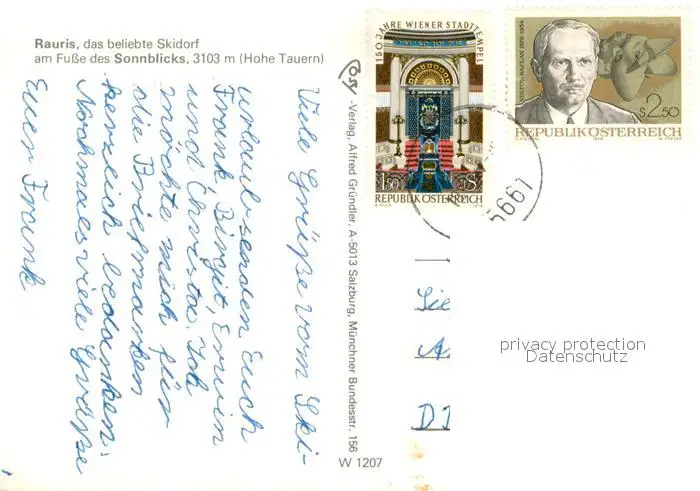 Rauris, das beliebte Skidorf
am Fuße des Sonnblicks, 3103 m (Hohe Tauern)
Viele Grüße vom Ski-
urlaub senden Euch
Frank, Birgit, Erwin
und Christa. Ich
möchte mich für
die Briefmarken
herzlich bedanken.
Nochmals viele Grüße
Euer Frank
-Verlag, Alfred Gründler, A-5013 Salzburg, Münchner Bundesstr. 156
W 1207
150 JAHRE WIENER STADTTEMPEL
1.50 S
REPUBLIK ÖSTERREICH
VIKTOR KAPLAN 1876-1934
S 2.50
REPUBLIK ÖSTERREICH
5661
Sie
A
privacy protection
Datenschutz